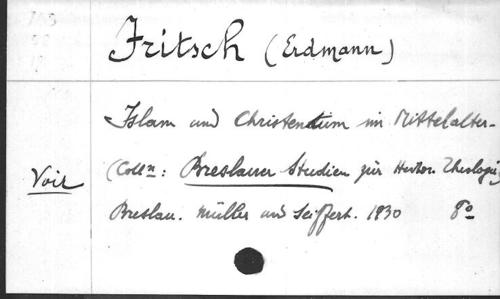 Fritsch (Erdmann)
Islam und Christentum im Mittelalter-
Voir (Colln: Breslauer Studien zur Histor. Theologie,
Breslau. Müller und Seiffert. 1930 8o